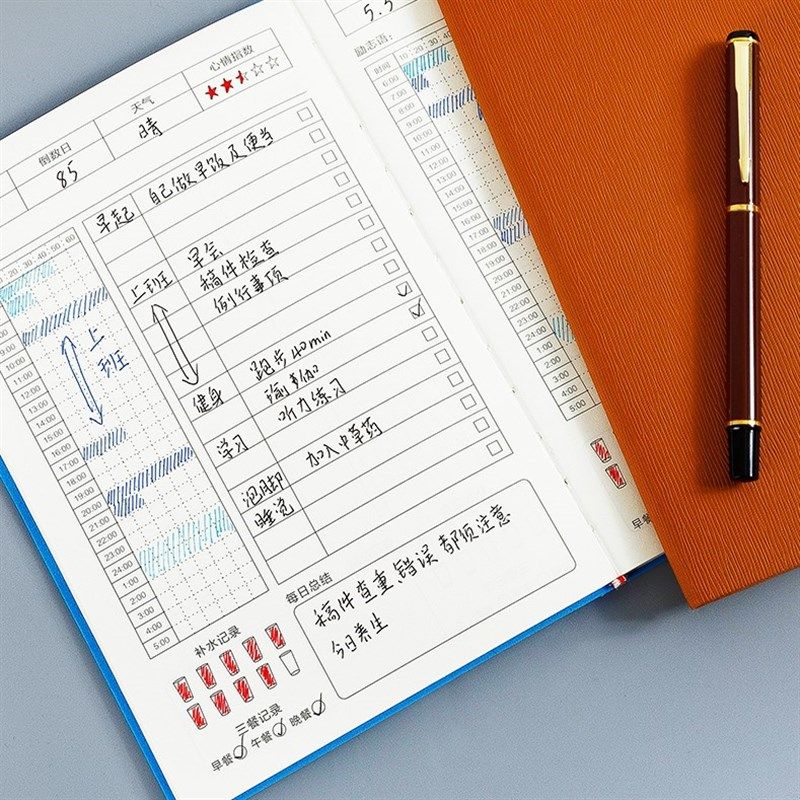 倒数日
85
天气
晴
心情指数
早起 自己做早饭及便当
上班 早会
稿件检查
例行事项
健身 跑步40min
瑜伽
学习 听力练习
泡脚 加入中草药
睡觉
10 20 30 40 50 60
9:00
10:00
11:00
12:00
13:00
14:00
15:00
16:00
17:00
18:00
19:00
20:00
21:00
22:00
23:00
24:00
1:00
2:00
3:00
4:00
5:00
上班
每日总结
稿件查重、错误都须注意
今日养生
补水记录
三餐记录
早餐 午餐 晚餐
5.5
励志语:
时间 10 20 30 40
6:00
7:00
8:00
9:00
10:00
11:00
12:00
13:00
14:00
15:00
16:00
17:00
18:00
19:00
20:00
21:00
22:00
23:00
24:00
1:00
2:00
3:00
4:00
5:00
早餐